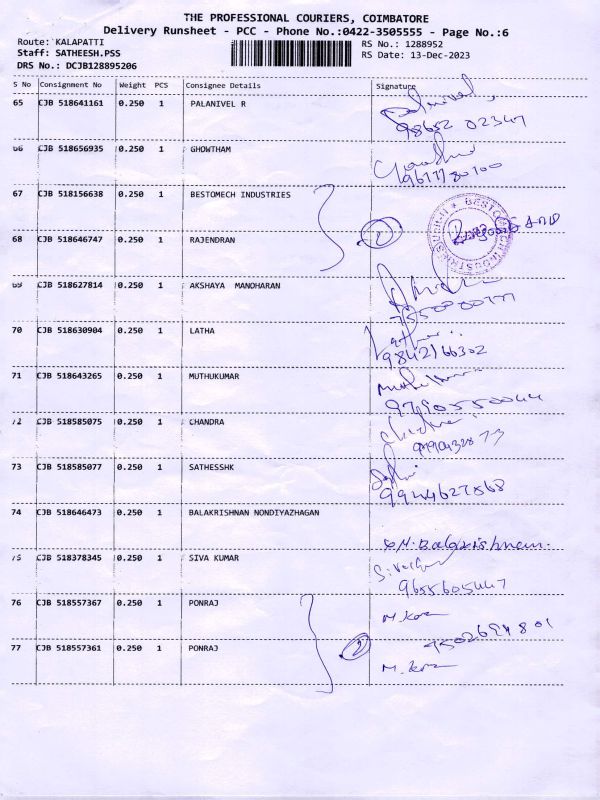 THE PROFESSIONAL COURIERS, COIMBATORE
Delivery Runsheet - PCC - Phone No.:0422-3505555 - Page No.:6
Route: KALAPATTI
Staff: SATHEESH.PSS
DRS No.: DCJB128895206
RS No.: 1288952
RS Date: 13-Dec-2023
S No Consignment No Weight PCS Consignee Details Signature
65 CJB 518641161 0.250 1 PALANIVEL R
98652 02347
66 CJB 518656935 0.250 1 GHOWTHAM
67 CJB 518156638 0.250 1 BESTOMECH INDUSTRIES
2
68 CJB 518646747 0.250 1 RAJENDRAN
69 CJB 518627814 0.250 1 AKSHAYA MANOHARAN
70 CJB 518630904 0.250 1 LATHA
9842166302
71 CJB 518643265 0.250 1 MUTHUKUMAR
72 CJB 518585075 0.250 1 CHANDRA
73 CJB 518585077 0.250 1 SATHESSHK
9944627868
74 CJB 518646473 0.250 1 BALAKRISHNAN NONDIYAZHAGAN
75 CJB 518378345 0.250 1 SIVA KUMAR
9655605447
76 CJB 518557367 0.250 1 PONRAJ
2
77 CJB 518557361 0.250 1 PONRAJ